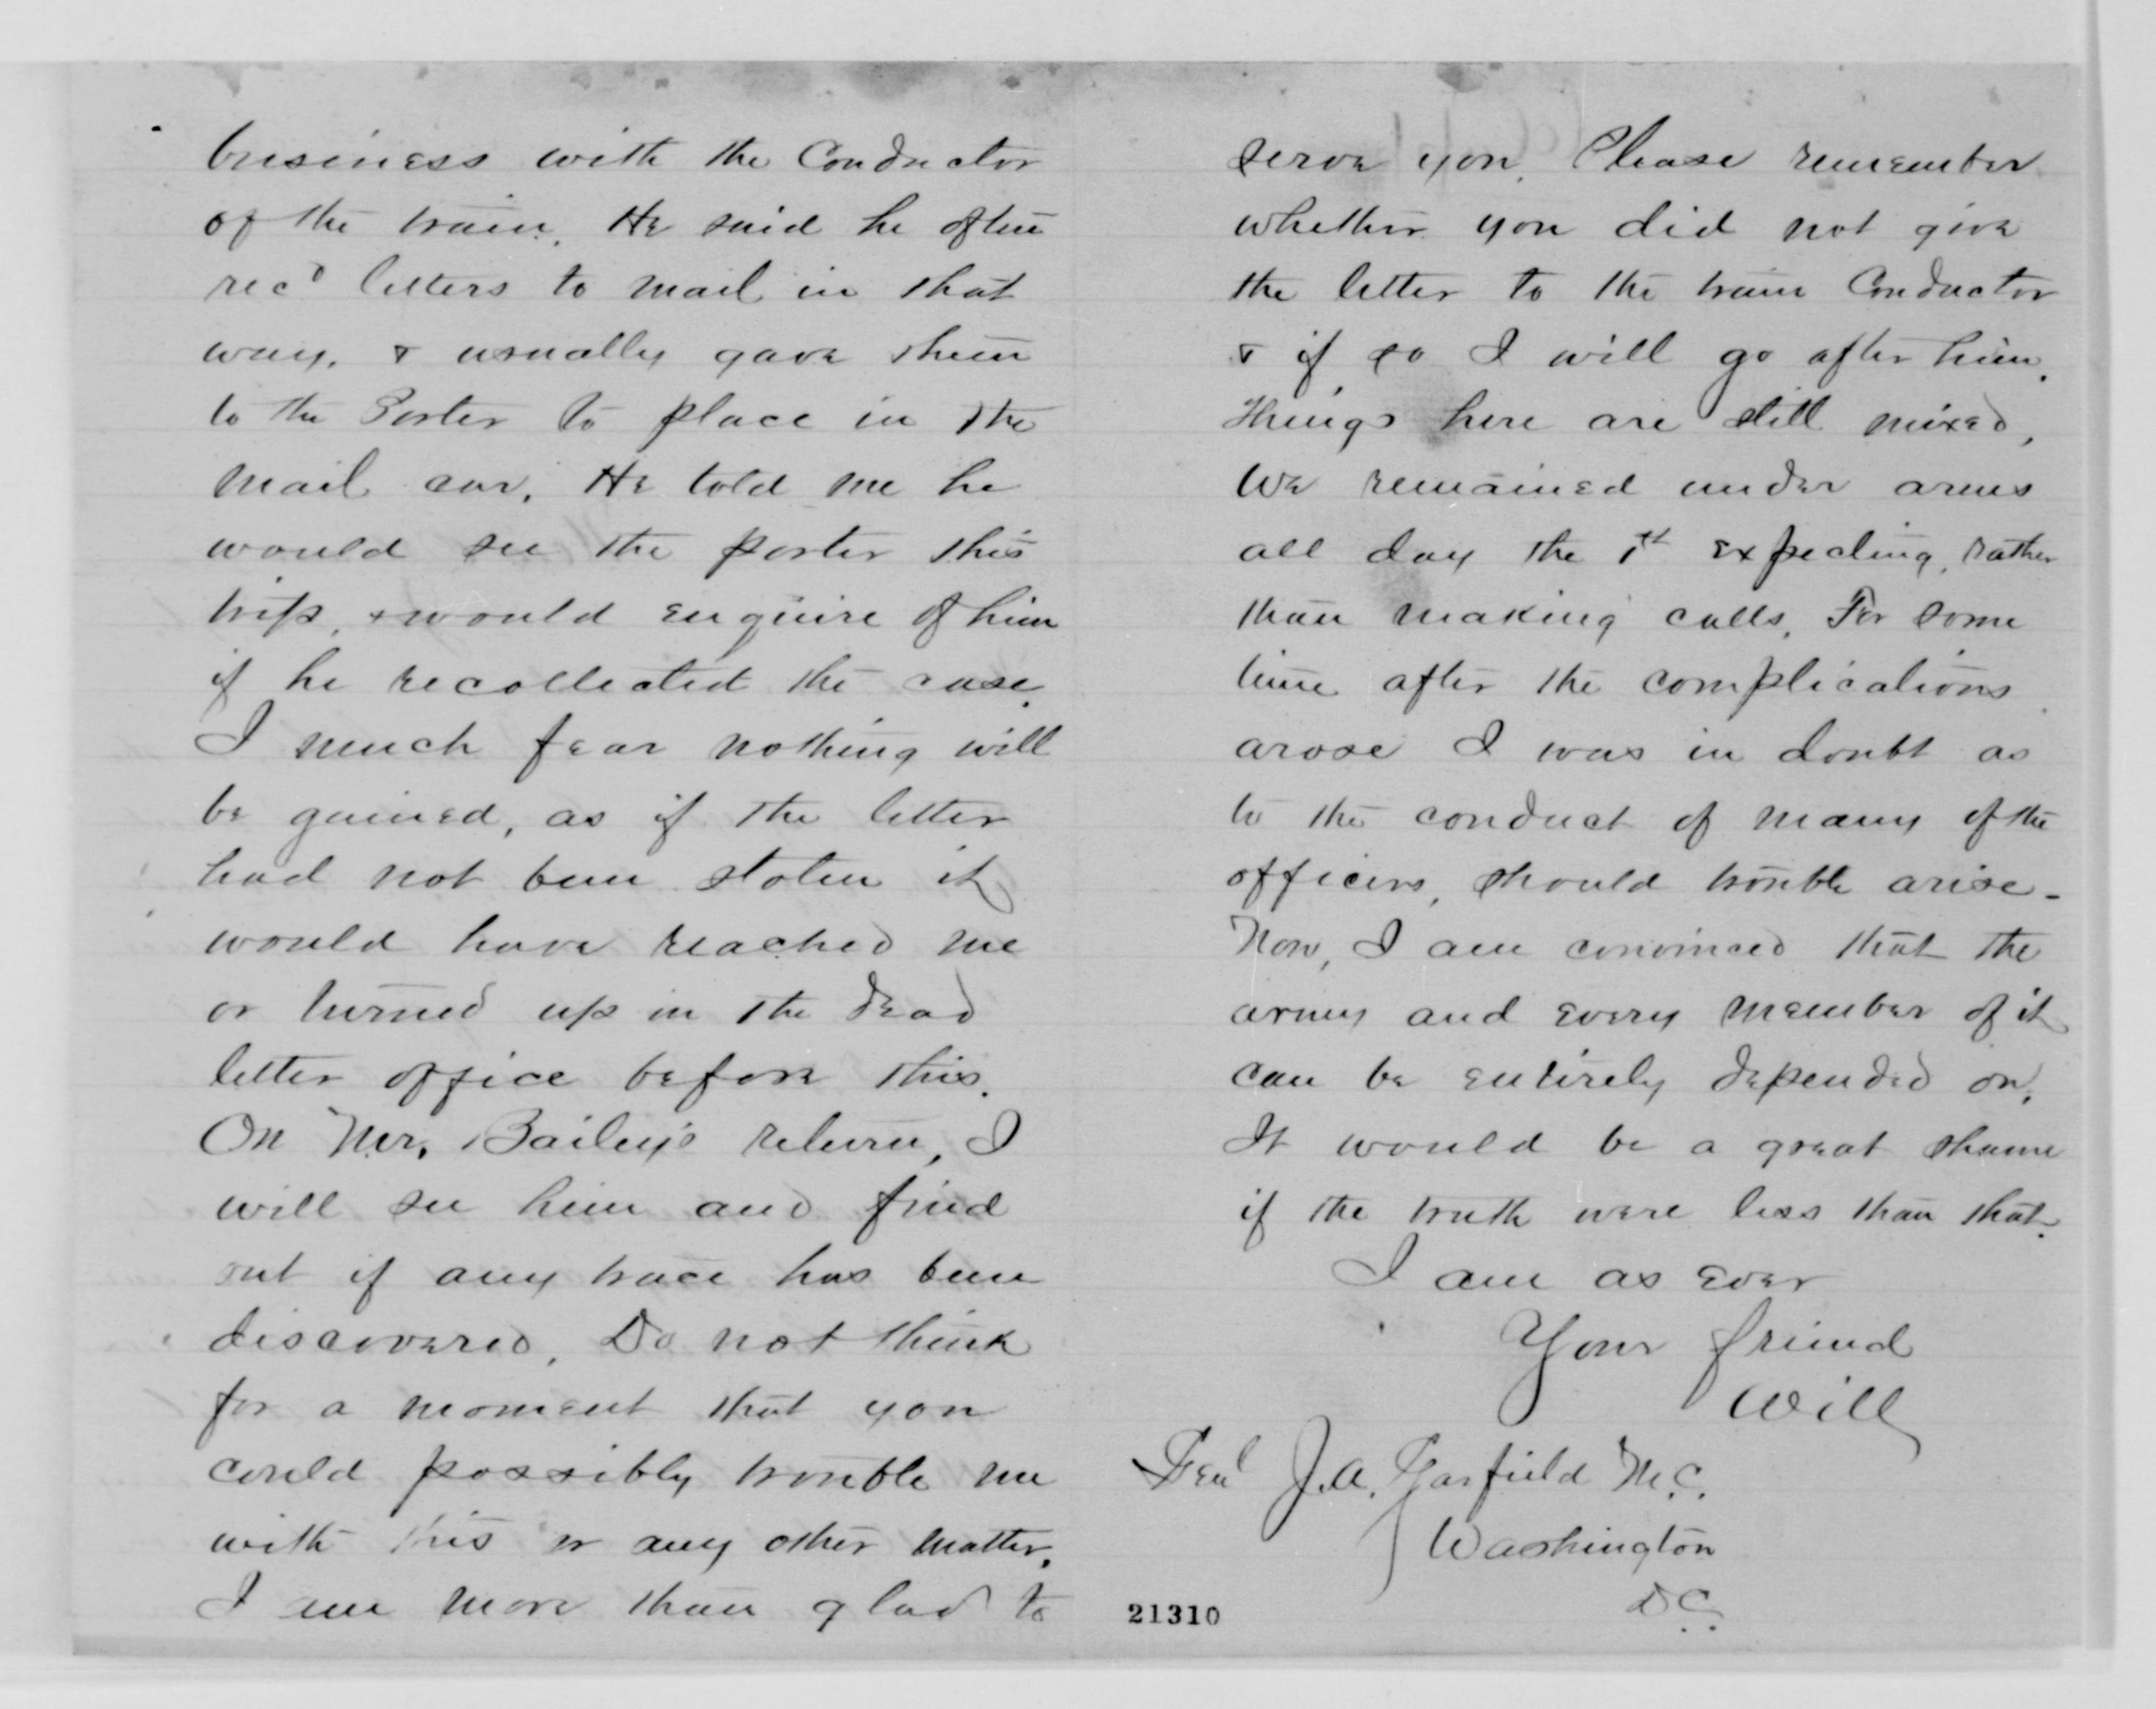 business with the Conductor
of the train. He said he often
recd letters to mail in that
way. & usually gave them
to the Porter to place in the
mail car. He told me he
would see the porter this
trip, & would enquire of him
if he recollected the case.
I much fear nothing will
be gained, as if the letter
had not been stolen it
would have reached me
or turned up in the dead
letter office before this.
On Mr. Bailey's return, I
will see him and find
out if any trace has been
discovered. Do not think
for a moment that you
could possibly trouble me
with this or any other matter.
I am more than glad to
serve you. Please remember
whether you did not give
the letter to the train Conductor
& if so I will go after him.
Things here are still mixed,
We remained under arms
all day the 1st expecting, rather
than making calls. For some
time after the complications
arose I was in doubt as
to the conduct of many of the
officers, should trouble arise -
Now, I am convinced that the
army and every member of it
can be entirely depended on.
It would be a great shame
if the truth were less than that.
I am as ever
Your friend
Will
Genl J. A. Garfield M.C.
Washington
D.C.
21310